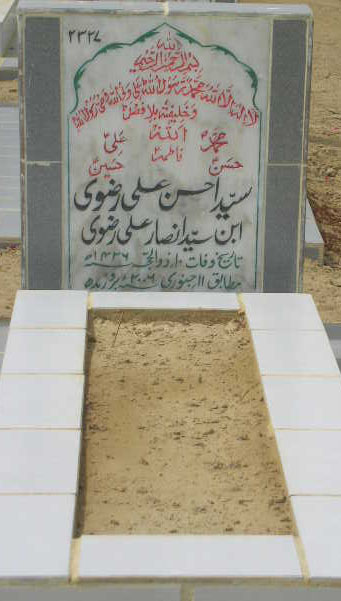 ۲۳۲۷
بسم اللہ الرحمن الرحیم
لا الہ الا اللہ محمد رسول اللہ علی ولی اللہ وصی رسول اللہ
وخلیفتہ بلا فصل
اللہ
محمدؐ علیؑ
فاطمہؑ
حسنؑ حسینؑ
سید احسن علی رضوی
ابن سید انصار علی رضوی
تاریخ وفات ۱۰ ذوالحجہ ۱۴۲۶ھ
مطابق ۱۱ جنوری ۲۰۰۶ء بروز بدھ